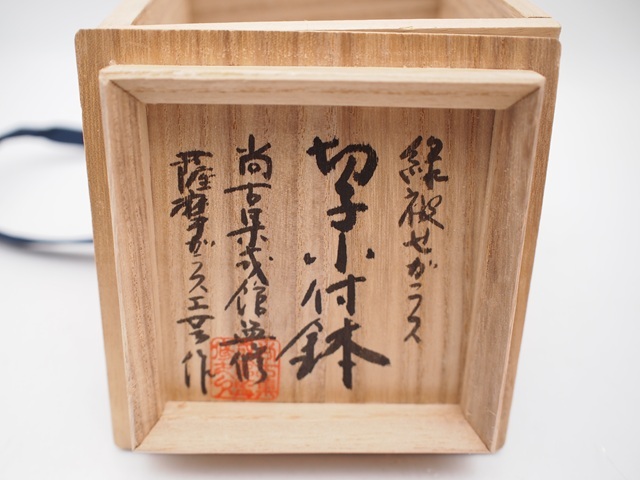 緑被せガラス
切子小付鉢
尚古集成館監修
薩摩ガラス工芸作